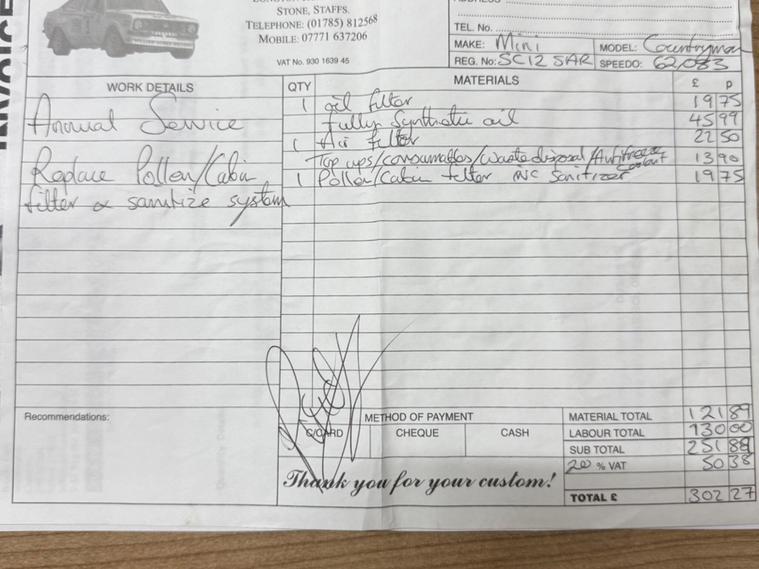 INVOICE
STONE, STAFFS.
TELEPHONE: (01785) 812568
MOBILE: 07771 637206
VAT No. 930 1639 45
TEL. No.
MAKE: Mini MODEL: Countryman
REG. No: SC12 SAR SPEEDO: 62,083
WORK DETAILS QTY MATERIALS £ P
1 oil filter 19 75
Annual Service Fully Synthetic oil 45 99
1 Air filter 22 50
Top ups/consumables/Waste disposal/Antifreeze coolant 13 90
Replace Pollen/Cabin 1 Pollen/Cabin filter inc Sanitizer 19 75
filter & sanitize system
Recommendations: METHOD OF PAYMENT MATERIAL TOTAL 121 89
C/CARD CHEQUE CASH LABOUR TOTAL 130 00
SUB TOTAL 251 89
20 % VAT 50 38
Thank you for your custom!
TOTAL £ 302 27